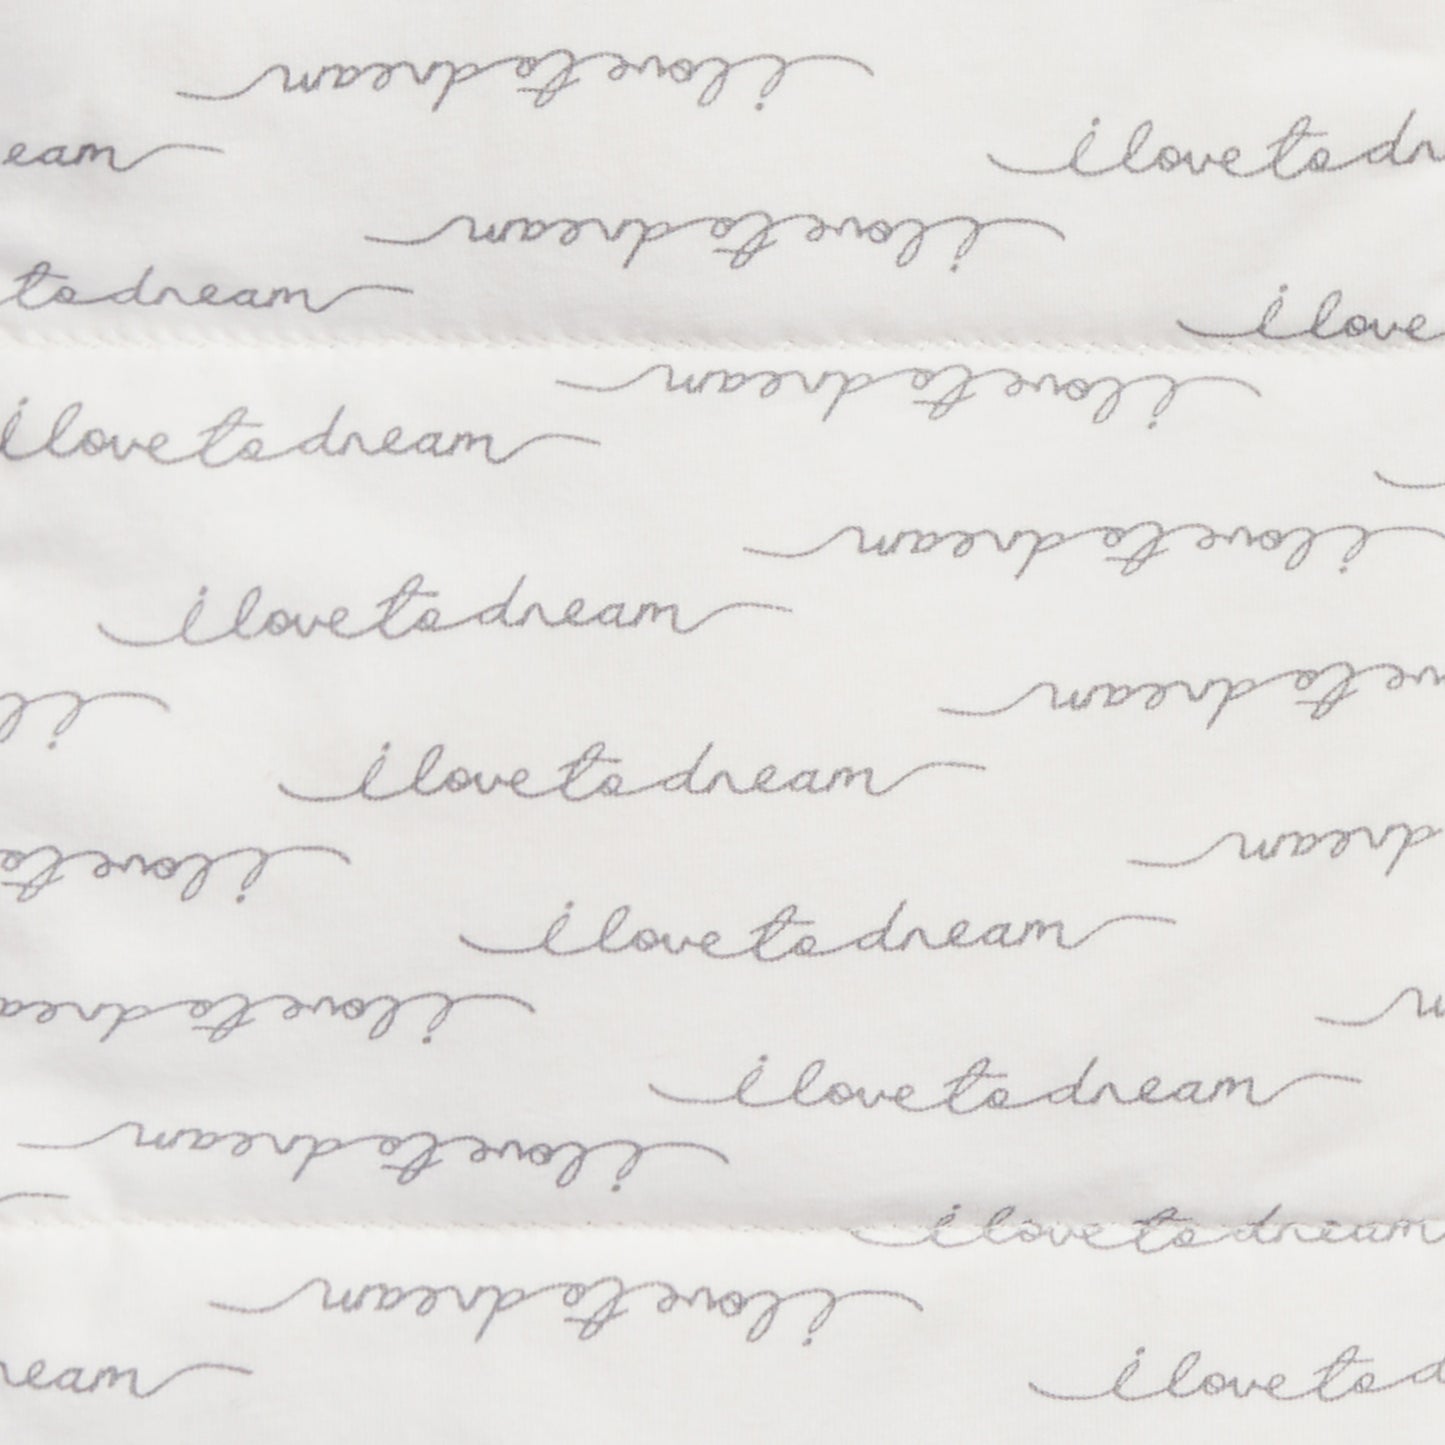 i love to dream
eam
i love to dr
i love to dream
to dream
i love
i love to dream
i love to dream
i love to dream
i love to dream
ve to dream
il
i love to dream
dream
love to
i love to dream
i love to drea
i love to dream
i love to dream
i love to dream
i love to dream
ream
i love to d